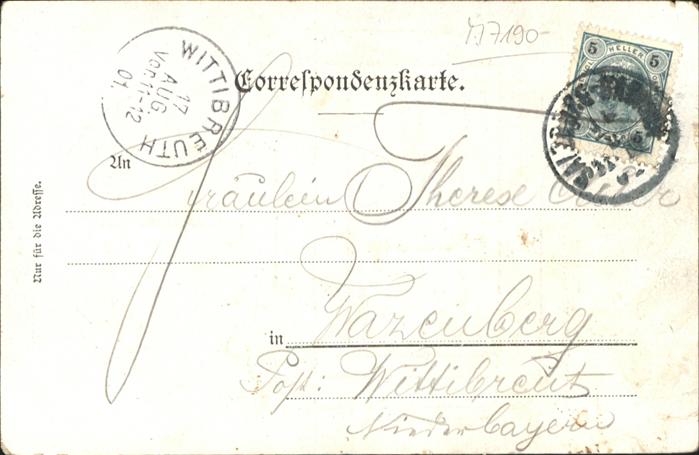 YJ7190-
5 HELLER 5
5
WITTIBREUTH
17
AUG
Vor. 11-12
01.
Correspondenzkarte.
An
Fräulein Therese
Nur für die Adresse.
in Wazenberg
Post: Wittibreut
Niederbayern